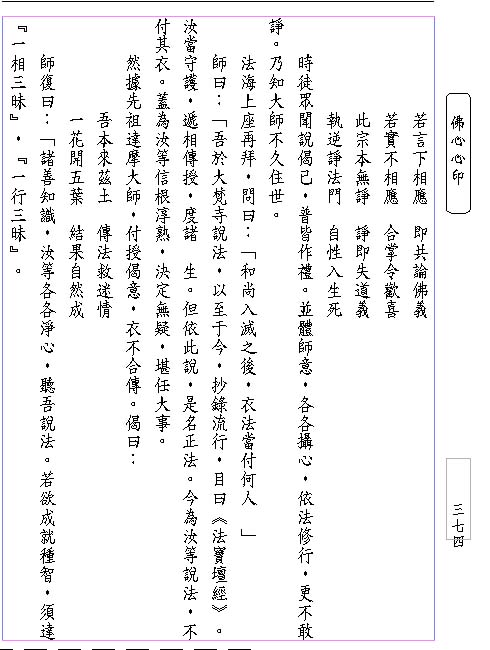 佛心心印
三七四
若言下相應　即共論佛義
若實不相應　合掌令歡喜
此宗本無諍　諍即失道義
執逆諍法門　自性入生死
時徒眾聞說偈已，普皆作禮。並體師意，各各攝心，依法修行，更不敢
諍。乃知大師不久住世。
法海上座再拜，問曰：「和尚入滅之後，衣法當付何人　」
師曰：「吾於大梵寺說法，以至于今，抄錄流行，目曰《法寶壇經》。
汝當守護，遞相傳授，度諸　生。但依此說，是名正法。今為汝等說法，不
付其衣。蓋為汝等信根淳熟，決定無疑，堪任大事。
然據先祖達摩大師，付授偈意，衣不合傳。偈曰：
吾本來茲土　傳法救迷情
一花開五葉　結果自然成
師復曰：「諸善知識，汝等各各淨心，聽吾說法。若欲成就種智，須達
『一相三昧』，『一行三昧』。